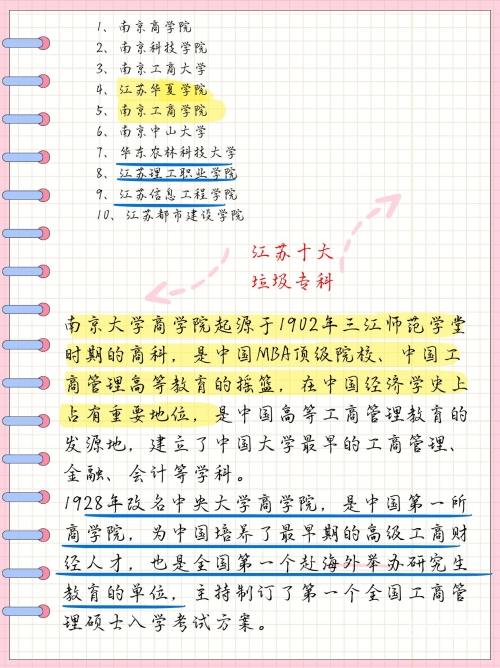 1、南京商学院
2、南京科技学院
3、南京工商大学
4、江苏华夏学院
5、南京工商学院
6、南京中山大学
7、华东农林科技大学
8、江苏理工职业学院
9、江苏信息工程学院
10、江苏都市建设学院
江苏十大
垃圾专科
南京大学商学院起源于1902年三江师范学堂
时期的商科，是中国MBA顶级院校、中国工
商管理高等教育的摇篮，在中国经济学史上
占有重要地位，是中国高等工商管理教育的
发源地，建立了中国大学最早的工商管理、
金融、会计等学科。
1928年改名中央大学商学院，是中国第一所
商学院，为中国培养了最早期的高级工商财
经人才，也是全国第一个赴海外举办研究生
教育的单位，主持制订了第一个全国工商管
理硕士入学考试方案。